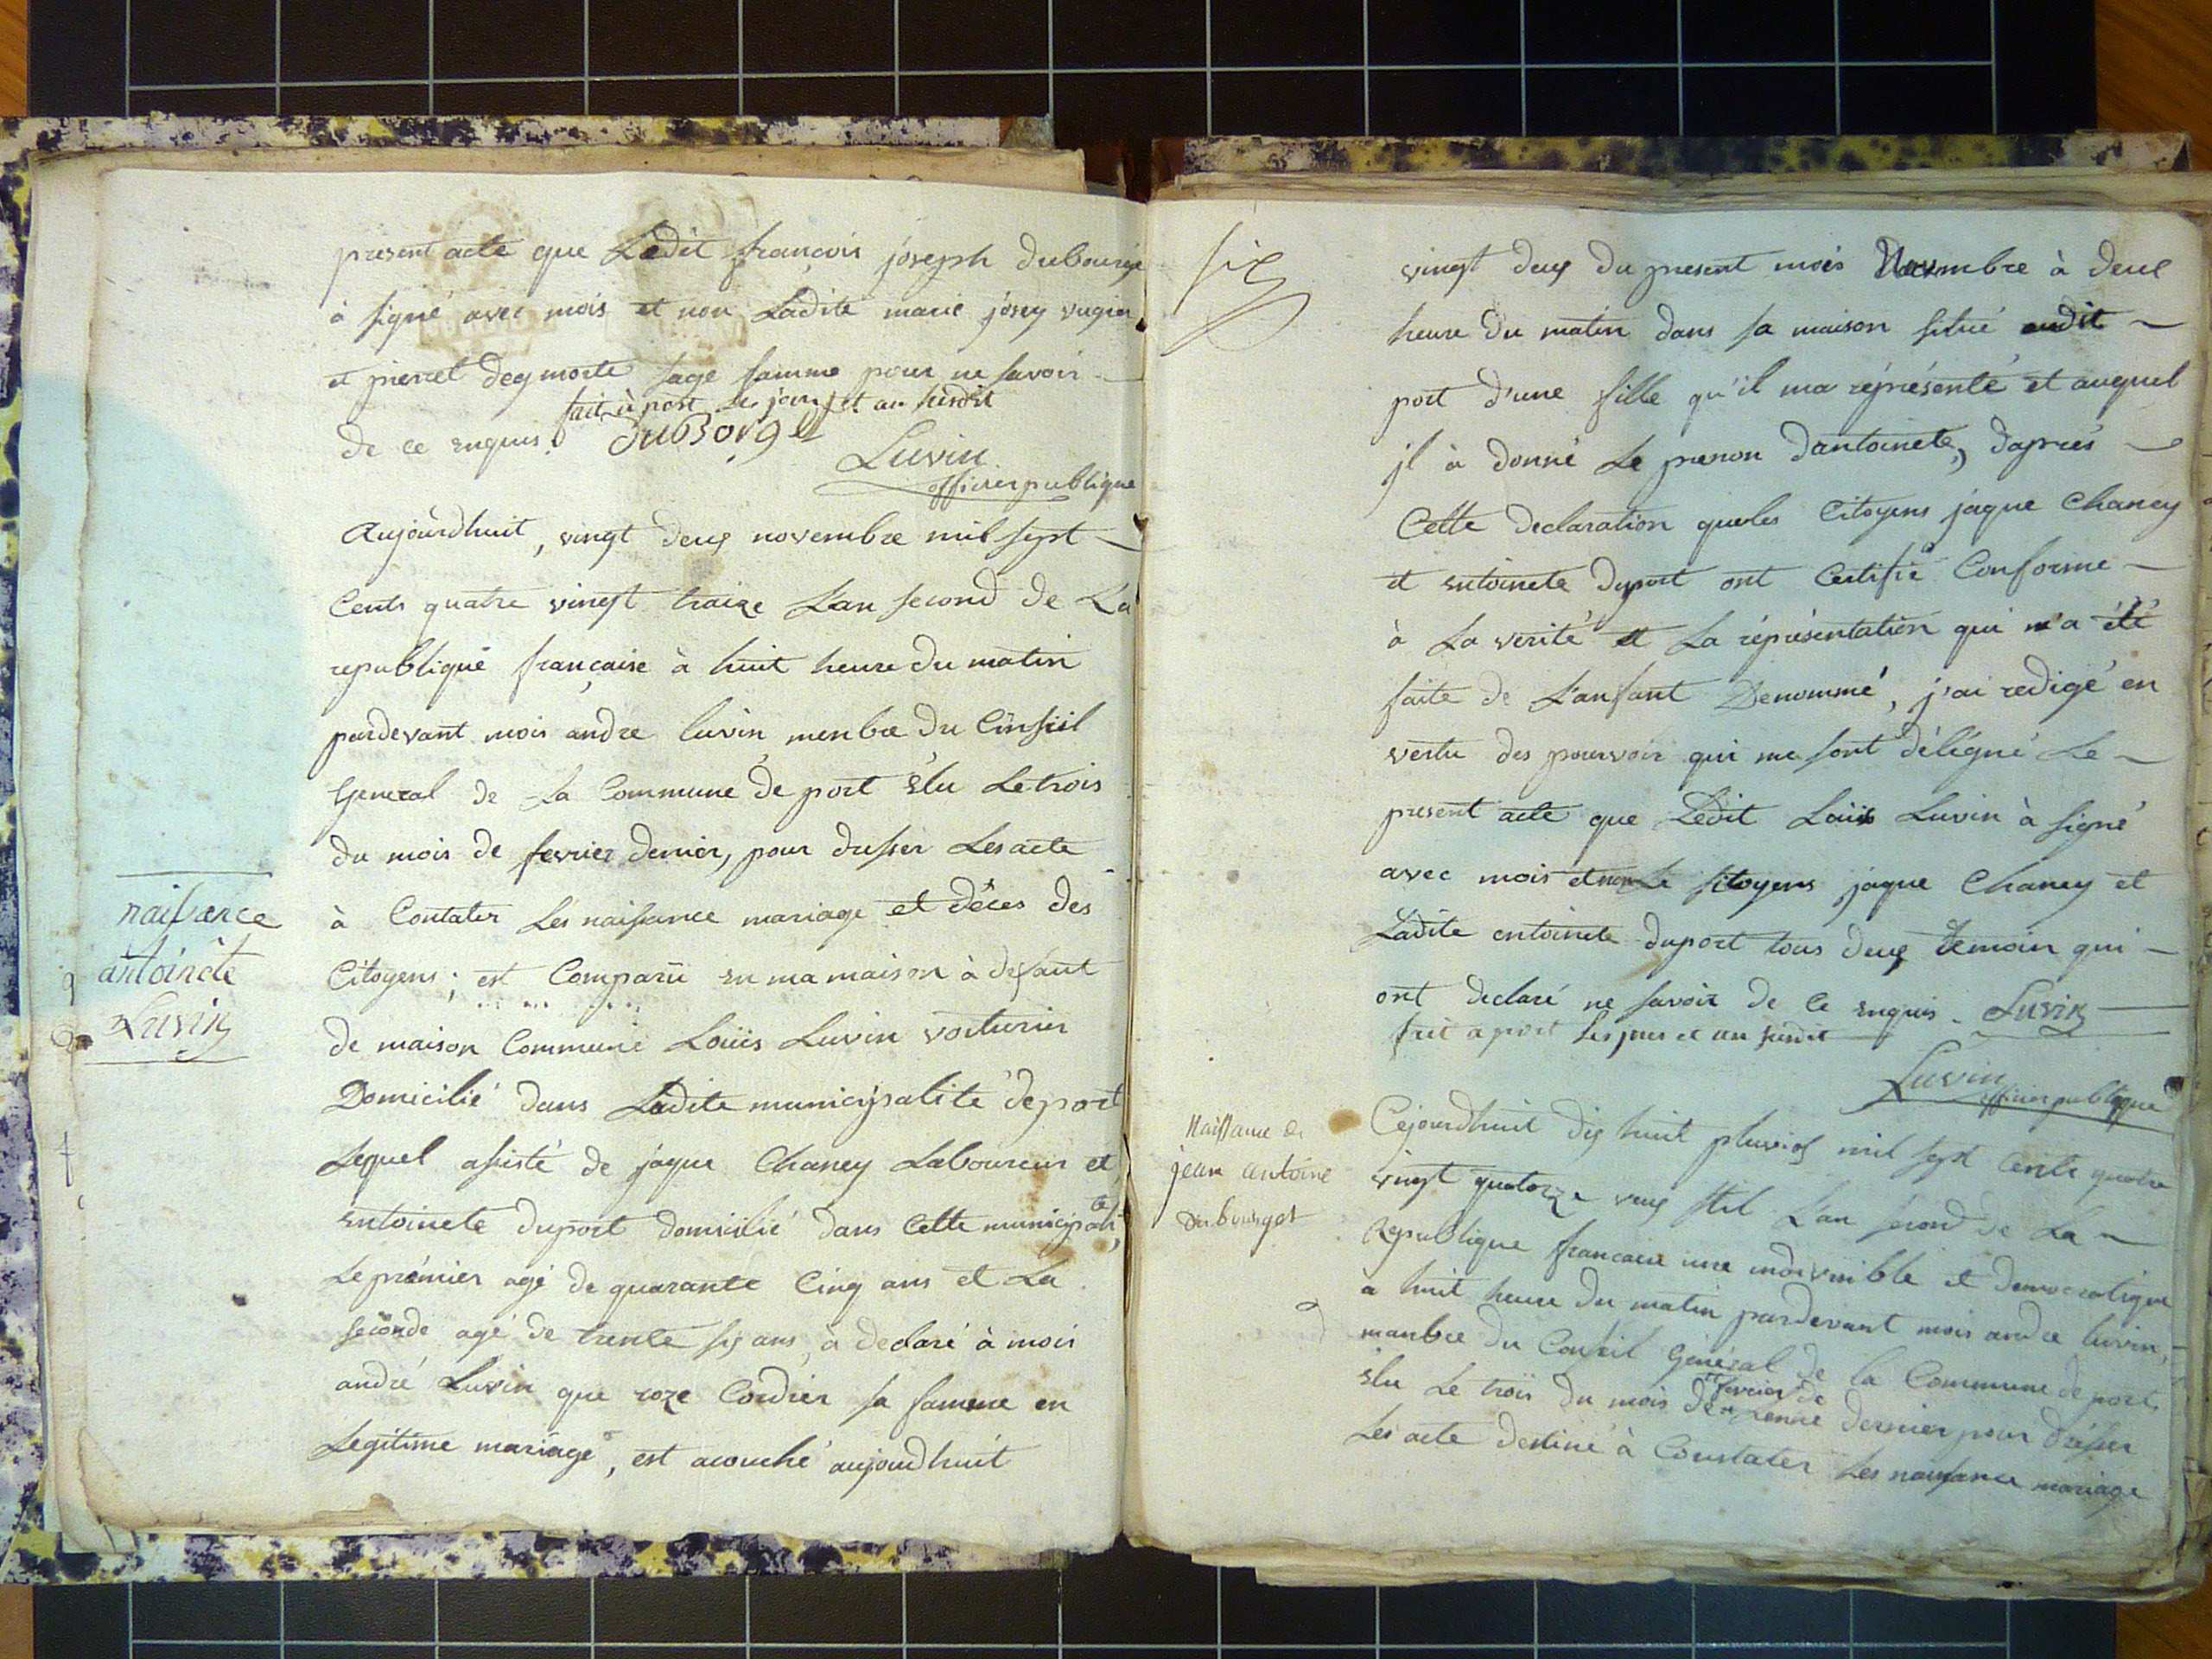 present acte que Ledit francois joseph dubourge
à signé avec mois et non Ladite marie josey vugier
et pierret deymorte sage famme pour ne savoir
fait à port les jour et an susdit
de ce enquis. duBorget
Luvin
officier publique
Aujourdhuit, vingt deux novembre mil sept
Cents quatre vingt traize L'an second de La
republique française à huit heure du matin
pardevant mois andre luvin menbre du Conseil
General de La Commune de port élu Le trois
du mois de fevrier dernier, pour dresser Les acte
à Contater Les naissance mariage et déces des
Citoyens; est Comparu en ma maison à defaut
de maison Commune Loüis Luvin voiturier
Domicilié dans Ladite municipalité de port
Lequel assisté de jaque Chaney Laboureur et
entoinete duport domicilié dans Cette municipalité,
Le prémier agé de quarante Cinq ans et La
seconde agé de trente six ans, à declaré à mois
andré Luvin que roze Cordier sa famme en
Legitime mariage, est acouché aujourdhuit
naissance
antoinete
Luvin
six
vingt deux du present mois Novembre à deux
heure du matin dans sa maison situé audit
port d'une fille qu'il ma réprésenté et auquel
jl à donné Le prenon dantoinete, daprès
Cette declaration que les Citoyens jaque Chaney
et entoinete duport ont Certifié Conforme
à La verité et La réprésentation qui m'a été
faite de L'anfant Denommé, j'ai redigé en
vertu des pourvoir qui me sont délégné Le
present acte que Ledit Loüis Luvin à signé
avec mois et non Le sitoyens jaque Chaney et
Ladite entoinete duport tous deux temoin qui
ont declaré ne savoir de ce enquis. Luvin
fait a port les jour et an susdit
Luvin
officier publique
Naissance de
jean antoine
dubourget
Cejourdhuit dix huit pluvios mil sept Cents quatre
vingt quatorze vieux stil L'an second de La
Republique francaise une indivisible et democratique
a huit heure du matin pardevant mois andre luvin,
manbre du Conseil Genéral de la Commune de port
élu Le trois du mois de fevrier de Lanné dernier pour drésser
Les acte destiné à Constater Les naissance mariage